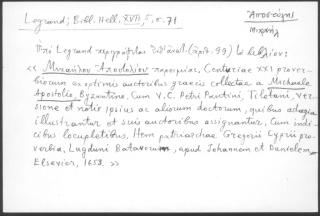 Legrand, Bibl. Hell. XVII, 5, σ. 71
Ἀποστόλης
Μιχαήλ
Legrand περιγράφει (ἀριθ. 99) τὸ βιβλίον:
« Μιχαήλου Ἀποστολίου παροιμίαι, Centuriae XXI prover-
biorum ex optimis auctoribus graecis collectae a Michaele
Apostolio Byzantino, Cum V.C. Petri Pantini, Tiletani, Ver-
sione et notis ipsius ac aliorum doctorum, quibus adagia
illustrantur et suis auctoribus assignantur. Cum indi-
cibus locupletibus. Item patriarchae Gregorii Cyprii pro-
verbia, Lugduni Batavorum, apud Johannem et Danielem
Elsevier, 1653. »